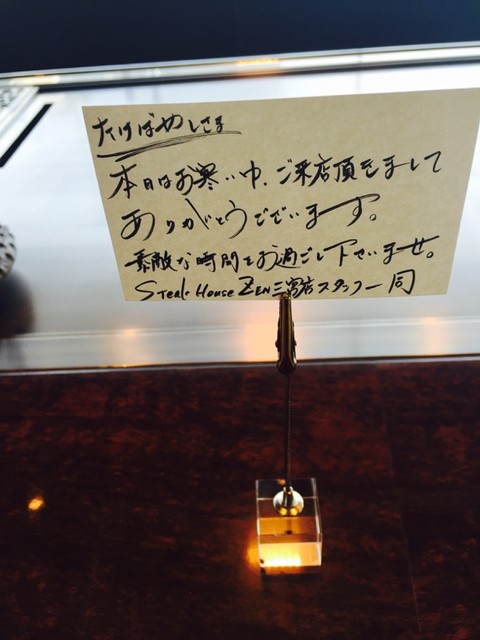 たけばやしさま
本日はお寒い中、ご来店頂きまして
ありがとうございます。
素敵な時間をお過ごし下せいませ。
Steak House ZEN 三宮店スタッフ一同